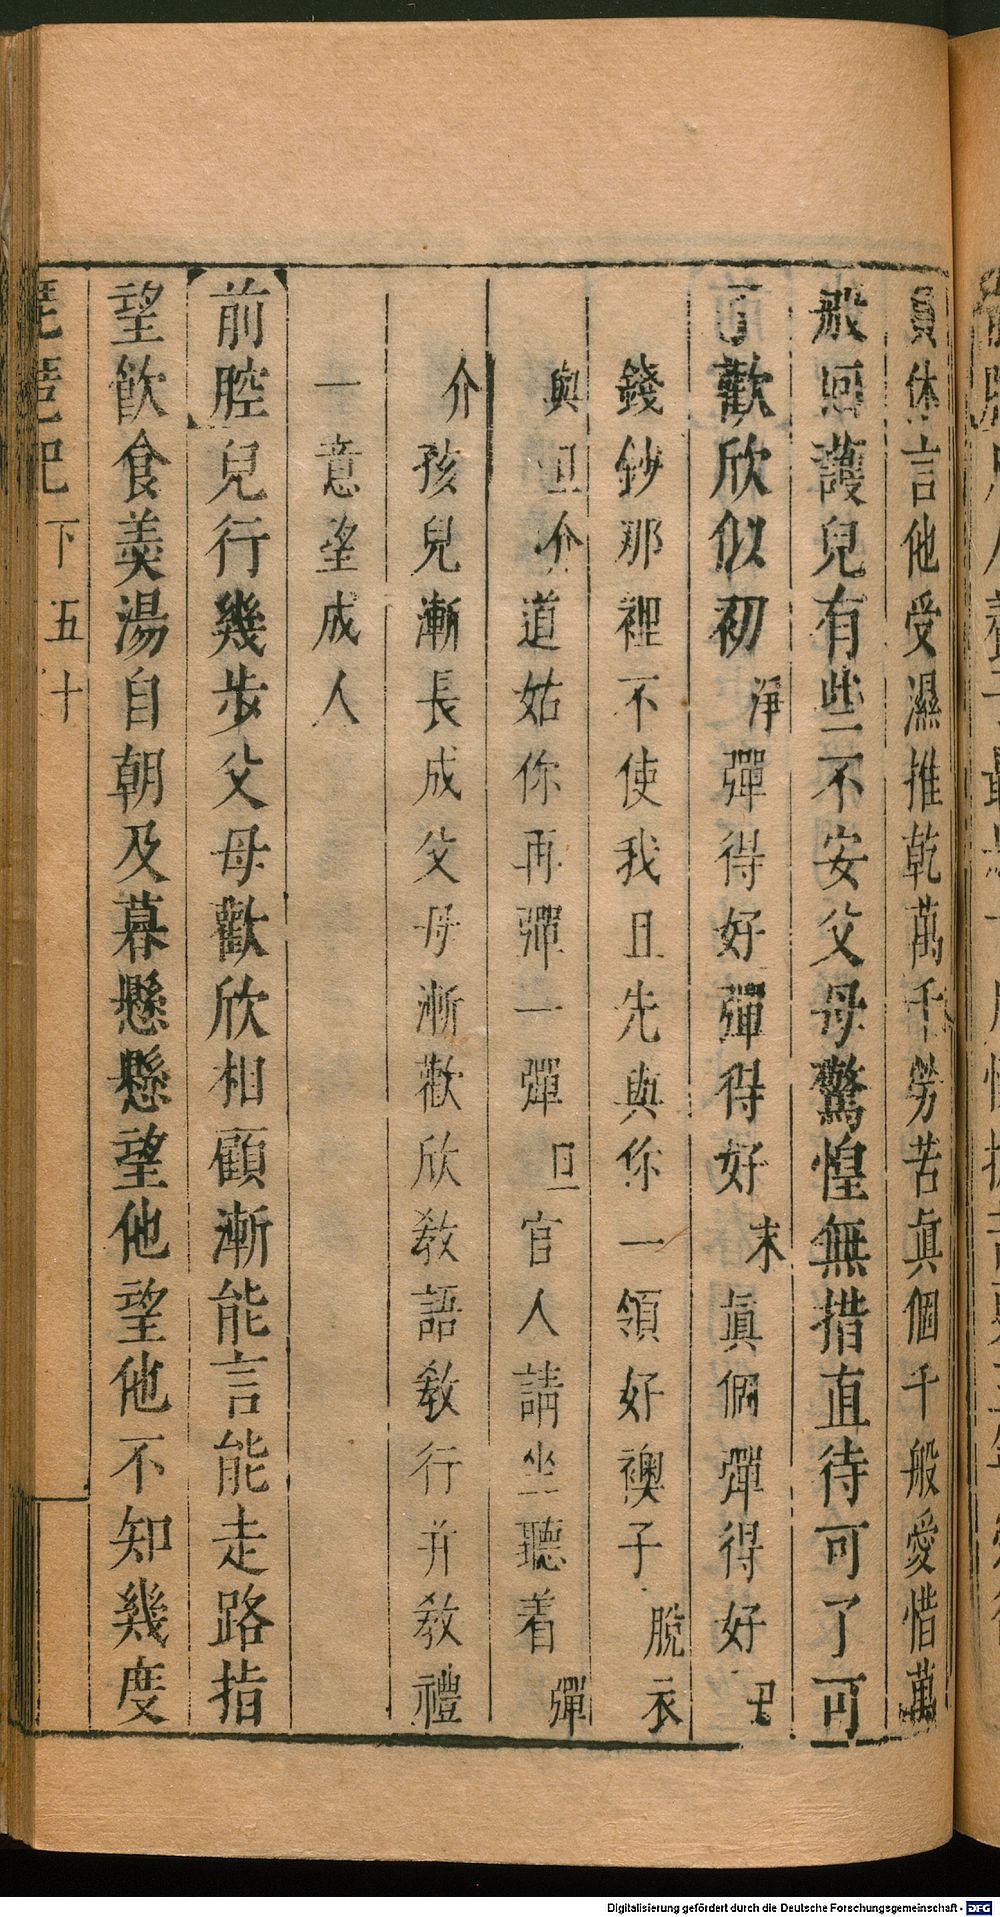 員休言他受濕推乾萬千勞苦眞個千般愛惜萬
般回護兒有些不安父母驚惶無措直待可了可
了歡欣似初 淨 彈得好彈得好 末 眞個彈得好 丑
錢鈔那裡不使我且先與你一領好襖子 脫衣
與旦介 道姑你再彈一彈 旦 官人請坐聽着 彈
介 孩兒漸長成父母漸歡欣敎語敎行并敎禮
一意望成人
前腔 兒行幾步父母歡欣相顧漸能言能走路指
望飲食羹湯自朝及暮懸懸望他望他不知幾度
琵琶記 下 五十
Digitalisierung gefördert durch die Deutsche Forschungsgemeinschaft - DFG